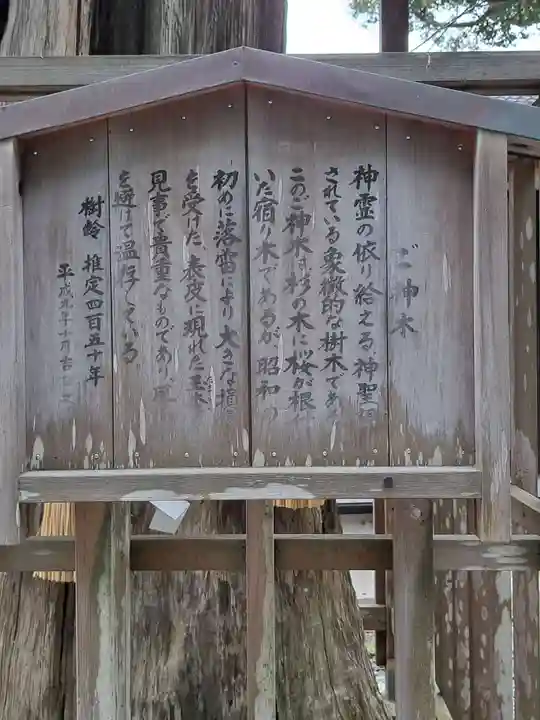 ご神木
神霊の依り給える神聖視
されている象徴的な樹木であ
このご神木は杉の木に桜が根付
いた宿り木であるが昭和の
初めに落雷により大きな損
を受けた、表皮に現れた玉木
見事で貴重なものであり、
を避けて温存している
樹齢 推定四百五十年
平成九年十月吉